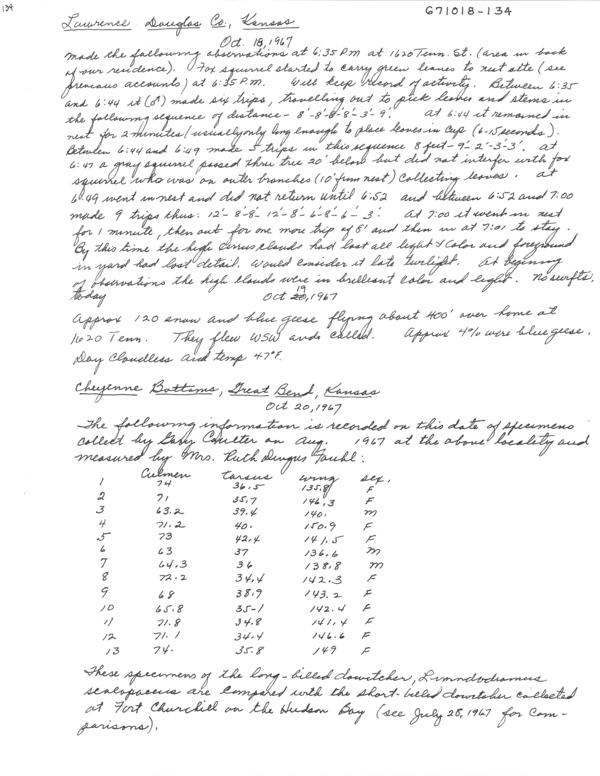 134
671018-134
Lawrence Douglas Co., Kansas
Oct. 18, 1967
Made the following observations at 6:35 P.M at 1620 Tenn. St. (area in back
of our residence). Fox squirrel started to carry green leaves to nest site (see
previous accounts) at 6:35 P.M. Will keep record of activity. Between 6:35
and 6:44 it (♂) made six trips, travelling out to pick leaves and stems in
the following sequence of distance - 8'-8'-8'-8'-3'-9'. at 6:44 it remained in
nest for 2 minutes (usually only long enough to place leaves in cup (6-15 seconds).
Between 6:44 and 6:49 made 5 trips in this sequence 8 feet-9'-2'-3'-3'. at
6:47 a gray squirrel passed thru tree 20' below but did not interfer with fox
squirrel who was on outer branches (10' from nest) collecting leaves. at
6:49 went in nest and did not return until 6:52 and between 6:52 and 7:00
made 9 trips thus: 12'-8'-8'-12'-8'-6'-8'-6'-3'. At 7:00 it went in nest
for 1 minute, then out for one more trip of 8' and then in at 7:01 to stay.
By this time the high cirrus clouds had lost all light & color and foreground
in yard had lost detail. Would consider it late twilight. At beginning
of observations the high clouds were in brilliant color and light. No swifts
today
Oct 19, 1967
Approx 120 snow and blue geese flying about 400' over home at
1620 Tenn. They flew WSW and called. Approx 4% were blue geese.
Day Cloudless and temp 47°F.
Cheyenne Bottoms, Great Bend, Kansas
Oct 20, 1967
The following information is recorded on this date of specimens
collect by Gary Coulter on Aug. 1967 at the above locality and
measured by Mrs. Ruth Dingus :
Culmen Tarsus wing sex.
1 74 36.5 135.8 F
2 71 35.7 146.3 F
3 63.2 39.4 140. m
4 71.2 40. 150.9 F
5 73 42.4 141.5 F
6 63 37 136.6 m
7 64.3 36 138.8 m
8 72.2 34.4 142.3 F
9 68 38.9 143.2 F
10 65.8 35-1 142.4 F
11 71.8 34.8 141.4 F
12 71.1 34.4 146.6 F
13 74. 35.8 149 F
These specimens of the long-billed dowitcher, Limnodromus
scolopaceus are compared with the short-billed dowitcher collected
at Fort Churchill on the Hudson Bay (see July 28, 1967 for Com-
parisons).